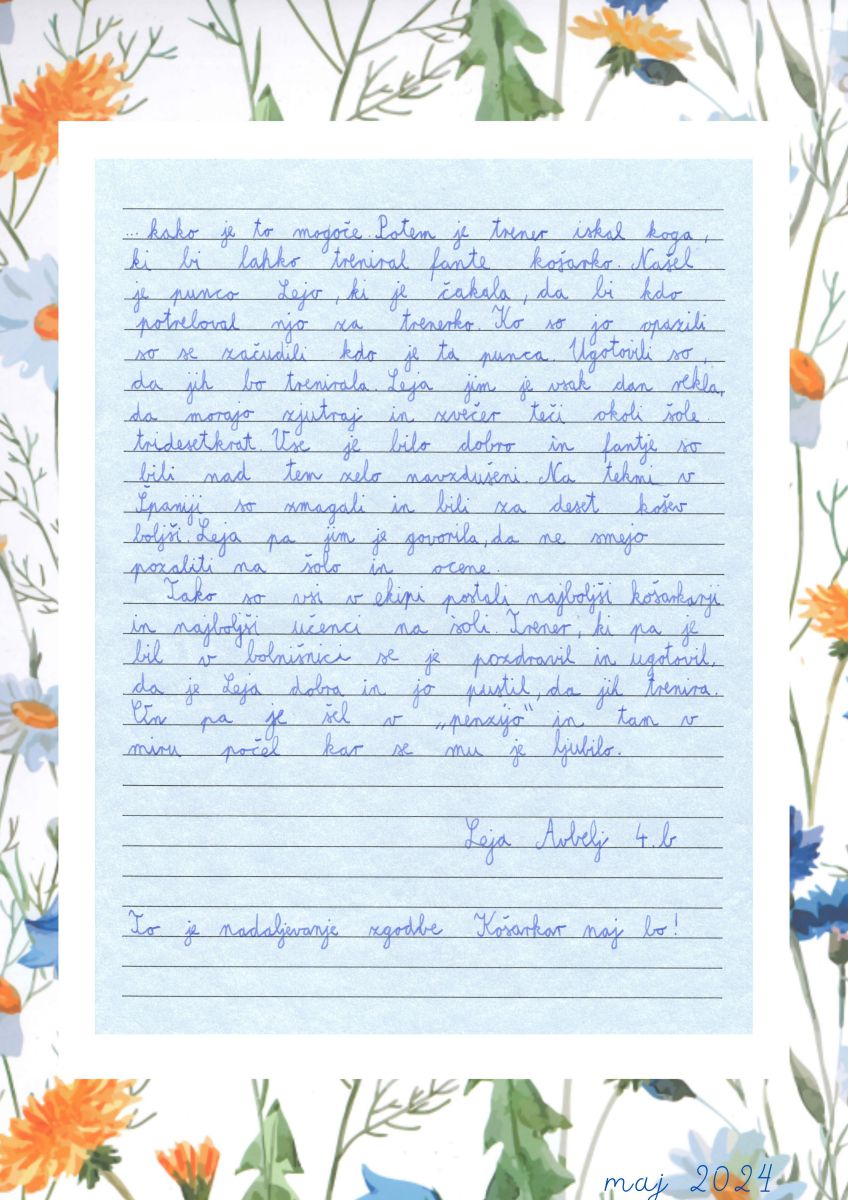 ... kako je to mogoče. Potem je trener iskal koga,
ki bi lahko treniral fante košarko. Našel
je punco Lejo, ki je čakala, da bi kdo
potreboval njo za trenerko. Ko so jo opazili
so se začudili kdo je ta punca. Ugotovili so,
da jih bo trenirala. Leja jim je vsak dan rekla,
da morajo zjutraj in zvečer teči okoli šole
tridesetkrat. Vse je bilo dobro in fantje so
bili nad tem zelo navzdušeni. Na tekmi v
Španiji so zmagali in bili za deset košev
boljši. Leja pa jim je govorila, da ne smejo
pozaliti na šolo in ocene.
Tako so vsi v ekipi postali najboljši košarkarji
in najboljši učenci na šoli. Trener, ki pa je
bil v bolnišnici se je pozdravil in ugotovil,
da je Leja dobra in jo pustil, da jih trenira.
On pa je šel v „penzijo“ in tam v
miru počel kar se mu je ljubilo.
Leja Avbelj 4.b
To je nadaljevanje zgodbe Košarkar naj bo!
maj 2024